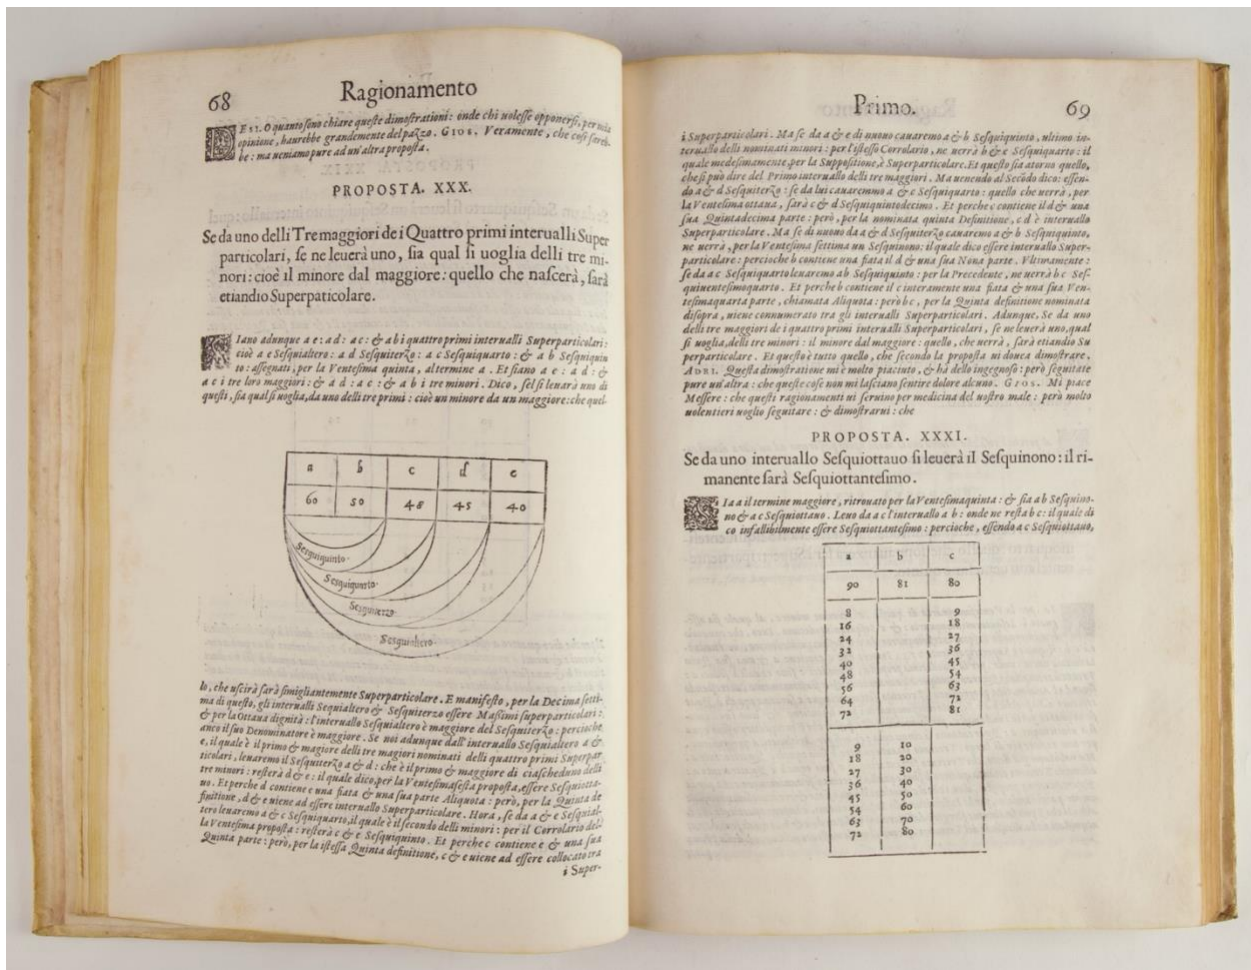 68
Ragionamento
DESI. O quanto sono chiare queste dimostrationi: onde chi uolesse opponersi, per mia
opinione, haurebbe grandemente del pazzo. GIOS. Veramente, che così sareb-
be: ma ueniamo pure ad un'altra proposta.
PROPOSTA. XXX.
Se da uno delli Tre maggiori de i Quattro primi interualli Super
particolari, se ne leuerà uno, sia qual si uoglia delli tre mi-
nori: cioè il minore dal maggiore: quello che nascerà, sarà
etiandio Superpaticolare.
SIano adunque a e: a d: a c: & a b i quattro primi interualli Superparticolari:
cioè a e Sesquialtero: a d Sesquiterzo: a c Sesquiquarto: & a b Sesquiquin
to: assegnati, per la Ventesima quinta, al termine a. Et siano a e: a d: &
a c i tre loro maggiori: & a d: a c: & a b i tre minori. Dico, se'l si leuarà uno di
questi, sia qual si uoglia, da uno delli tre primi: cioè un minore da un maggiore: che quel-
a b c d e
60 50 48 45 40
Sesquiquinto.
Sesquiquarto.
Sesquiterzo.
Sesquialtero.
lo, che uscirà sarà simigliantemente Superparticolare. E manifesto, per la Decima setti-
ma di questo, gli interualli Sequialtero & Sesquiterzo essere Massimi superparticolari:
& per la Ottaua dignità: l'interuallo Sesquialtero è maggiore del Sesquiterzo: percioche
anco il suo Denominatore è maggiore. Se noi adunque dall'interuallo Sesquialtero a &
e, il quale è il primo & magiore delli tre magiori nominati delli quattro primi Superpar
ticolari, leuaremo il Sesquiterzo a & d: che è il primo & maggiore di ciascheduno delli
tre minori: resterà d & e: il quale dico, per la Ventesimasesta proposta, essere Sesquiotta-
uo. Et perche d contiene e una fiata & una sua parte Aliquota: però, per la Quinta de
finitione, d & e uiene ad essere interuallo Superparticolare. Hora, se da a & e Sesquial-
tero leuaremo a & c Sesquiquarto, il quale è il secondo delli minori: per il Corrolario del-
la Ventesima proposta: resterà c & e Sesquiquinto. Et perche c contiene e & una sua
Quinta parte: però, per la istessa Quinta definitione, c & e uiene ad essere collocato tra
i Super-
Primo.
69
i Superparticolari. Ma se da a & e di nuouo cauaremo a & b Sesquiquinto, ultimo in-
teruallo delli nominati minori: per l'istesso Corrolario, ne uerrà b & e Sesquiquarto: il
quale medesimamente, per la Suppositione, è Superparticolare. Et questo sia atorno quello,
che si può dire del Primo interuallo delli tre maggiori. Ma uenendo al Secōdo dico: essen-
do a & d Sesquiterzo: se da lui cauaremmo a & c Sesquiquarto: quello che uerrà, per
la Ventesima ottaua, sarà c & d Sesquiquintodecimo. Et perche c contiene il d & una
sua Quintadecima parte: però, per la nominata quinta Definitione, c d è interuallo
Superparticolare. Ma se di nuouo da a & d Sesquiterzo cauaremo a & b Sesquiquinto,
ne uerrà, per la Ventesima settima un Sesquinono: il quale dico essere interuallo Super-
particolare: percioche b contiene una fiata il d & una sua Nona parte. Vltimamente:
se da a c Sesquiquarto leuaremo a b Sesquiquinto: per la Precedente, ne uerrà b c Ses-
quiuentesimoquarto. Et perche b contiene il c interamente una fiata & una sua Ven-
tesimaquarta parte, chiamata Aliquota: però b c, per la Quinta definitione nominata
disopra, uiene connumerato tra gli interualli Superparticolari. Adunque, Se da uno
delli tre maggiori de i quattro primi interualli Superparticolari, se ne leuerà uno, qual
si uoglia, delli tre minori: il minore dal maggiore: quello, che uerrà, sarà etiandio Su
perparticolare. Et questo è tutto quello, che secondo la proposta ui douea dimostrare.
ADRI. Questa dimostratione mi è molto piaciuto, & hà dello ingegnoso: però seguitate
pure un'altra: che queste cose non mi lasciano sentire dolore alcuno. GIOS. Mi piace
Messere: che questi ragionamenti ui seruino per medicina del uostro male: però molto
uolentieri uoglio seguitare: & dimostrarui: che
PROPOSTA. XXXI.
Se da uno interuallo Sesquiottauo si leuerà il Sesquinono: il ri-
manente sarà Sesquiottantesimo.
SIa a il termine maggiore, ritrouato per la Ventesimaquinta: & sia a b Sesquino-
no & a c Sesquiottauo. Leuo da a c l'interuallo a b: onde ne resta b c: il quale di
co infallibilmente essere Sesquiottantesimo: percioche, essendo a c Sesquiottauo,
a b c
90 81 80
8 9
16 18
24 27
32 36
40 45
48 54
56 63
64 72
72 81
9 10
18 20
27 30
36 40
45 50
54 60
63 70
72 80